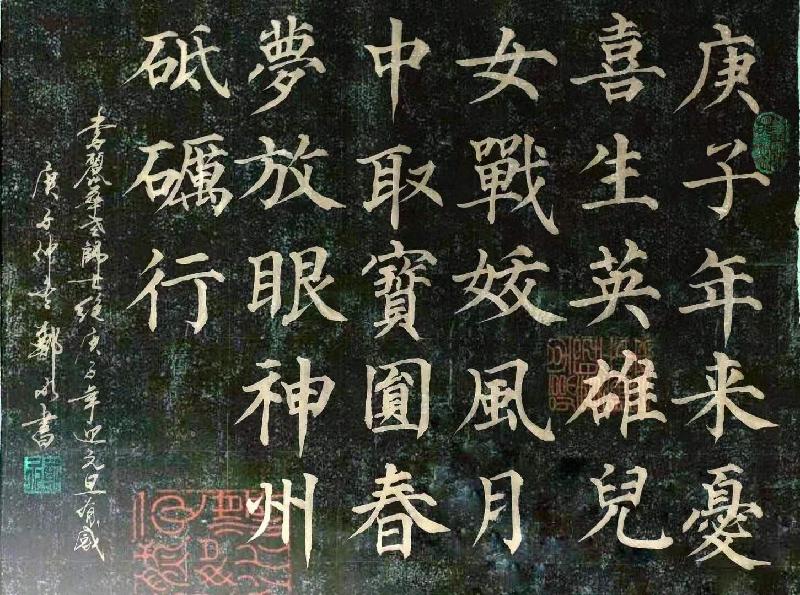 庚子年来憂
喜生英雄兒
女戰姣風月
中取寶圓春
夢放眼神州
砥礪行
李麗華老師女强庚子年迎元旦有感
庚子仲冬鄭永書